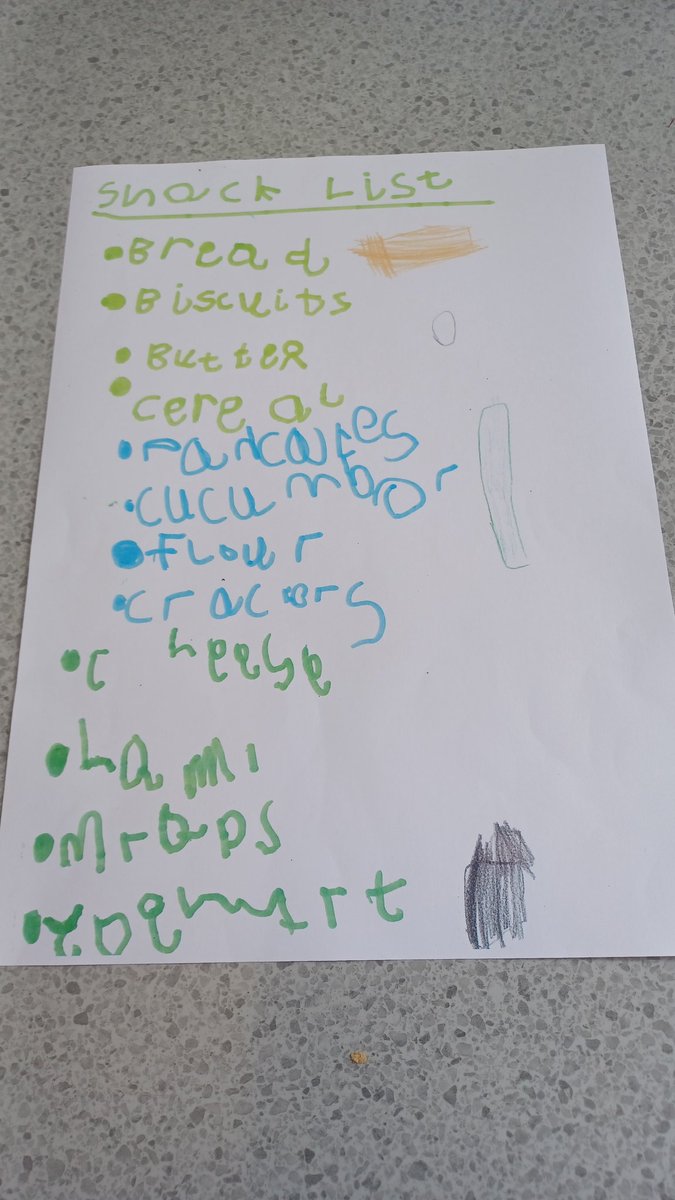 Snack List
• Bread
• Biscuits
• ButteR
• cereal
• Pancakes
• cucumbor
• Flour
• cracors
• cheese
• hami
• Mraps
• Yogurt